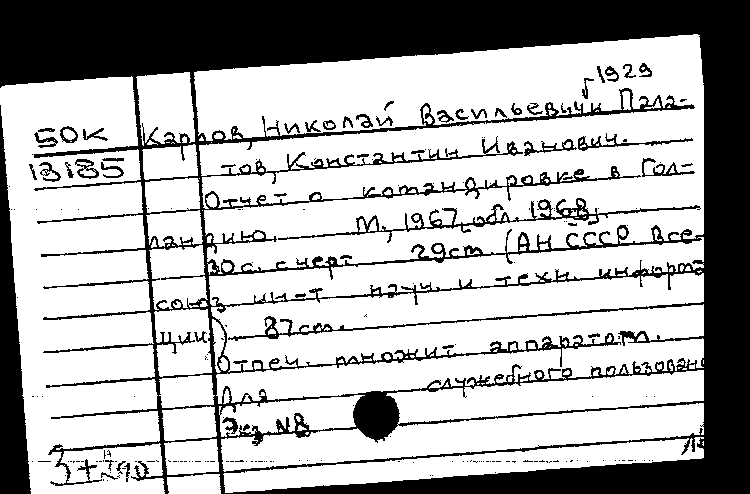 1929
50К Карпов, Николай Васильевич и Пала-
13135 тов, Константин Иванович.
Отчет о командировке в Гол-
ландию. М., 1967, обл. 1968.
30с. с черт. 29см. (АН СССР. Все-
союз ин-т науч. и техн. информа
ции) 87см.
Отпеч. множит аппаратом.
Для служебного пользован
Экз. №8
3+290